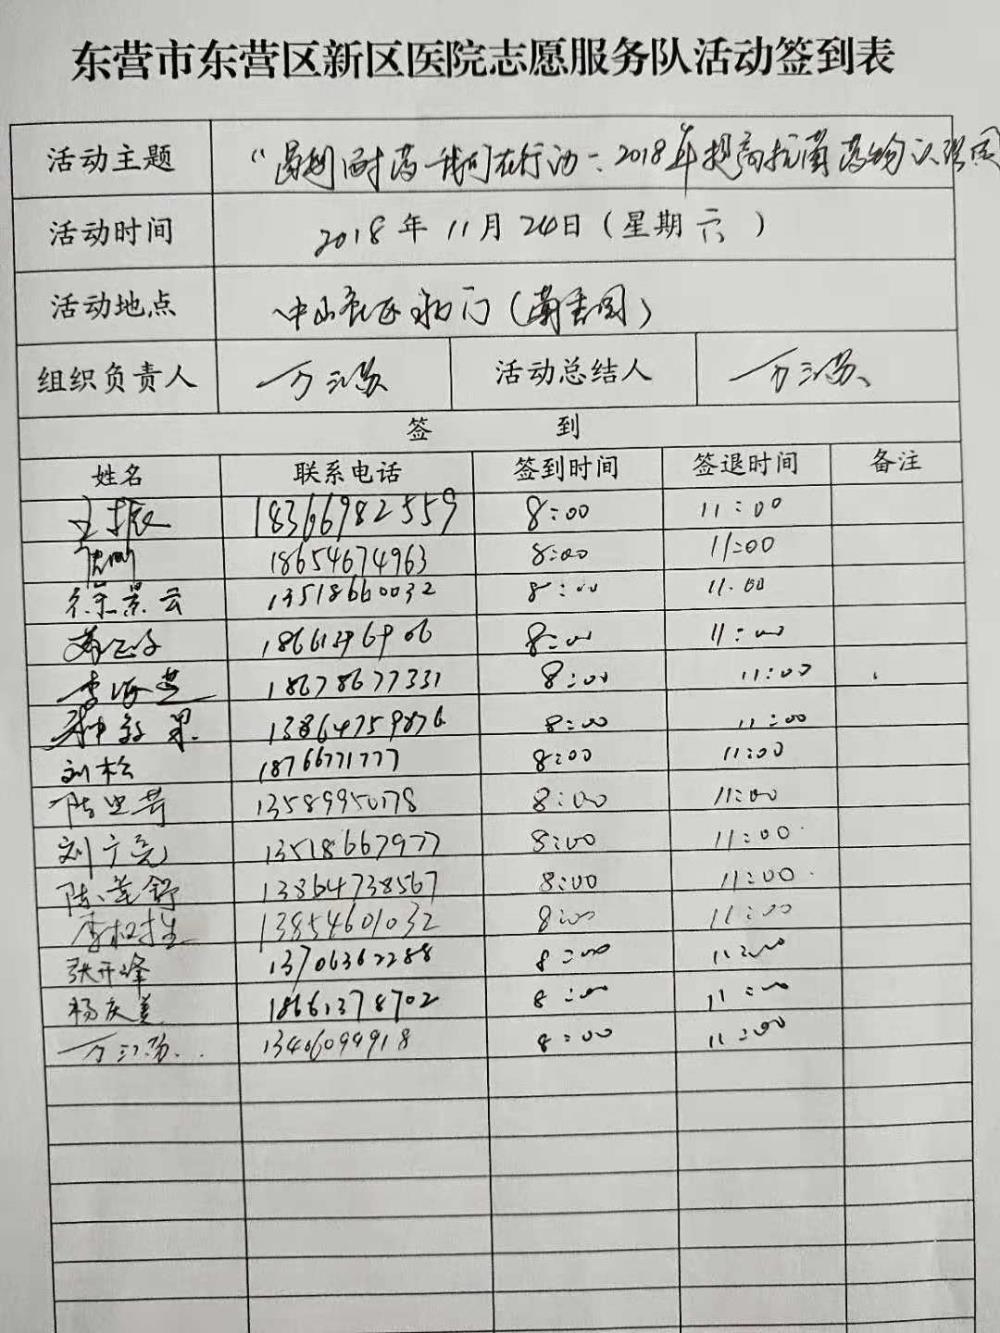 东营市东营区新区医院志愿服务队活动签到表
活动主题 2018年提高抗菌药物认识周
活动时间 2018年11月24日(星期六)
活动地点 中山社区
组织负责人 活动总结人
签 到
姓名 联系电话 签到时间 签退时间 备注
王振 18366982559 8:00 11:00
18654674963 8:00 11:00
徐景云 13518660032 8:00 11:00
8:00 11:00
李海燕 18678677331 8:00 11:00
13864759876 8:00 11:00
刘松 18766771777 8:00 11:00
13589950178 8:00 11:00
刘广亮 13518667977 8:00 11:00
13864738567 8:00 11:00
13854601032 8:00 11:00
张开峰 13706362288 8:00 11:00
杨庆美 18661378702 8:00 11:00
13406094918 8:00 11:00